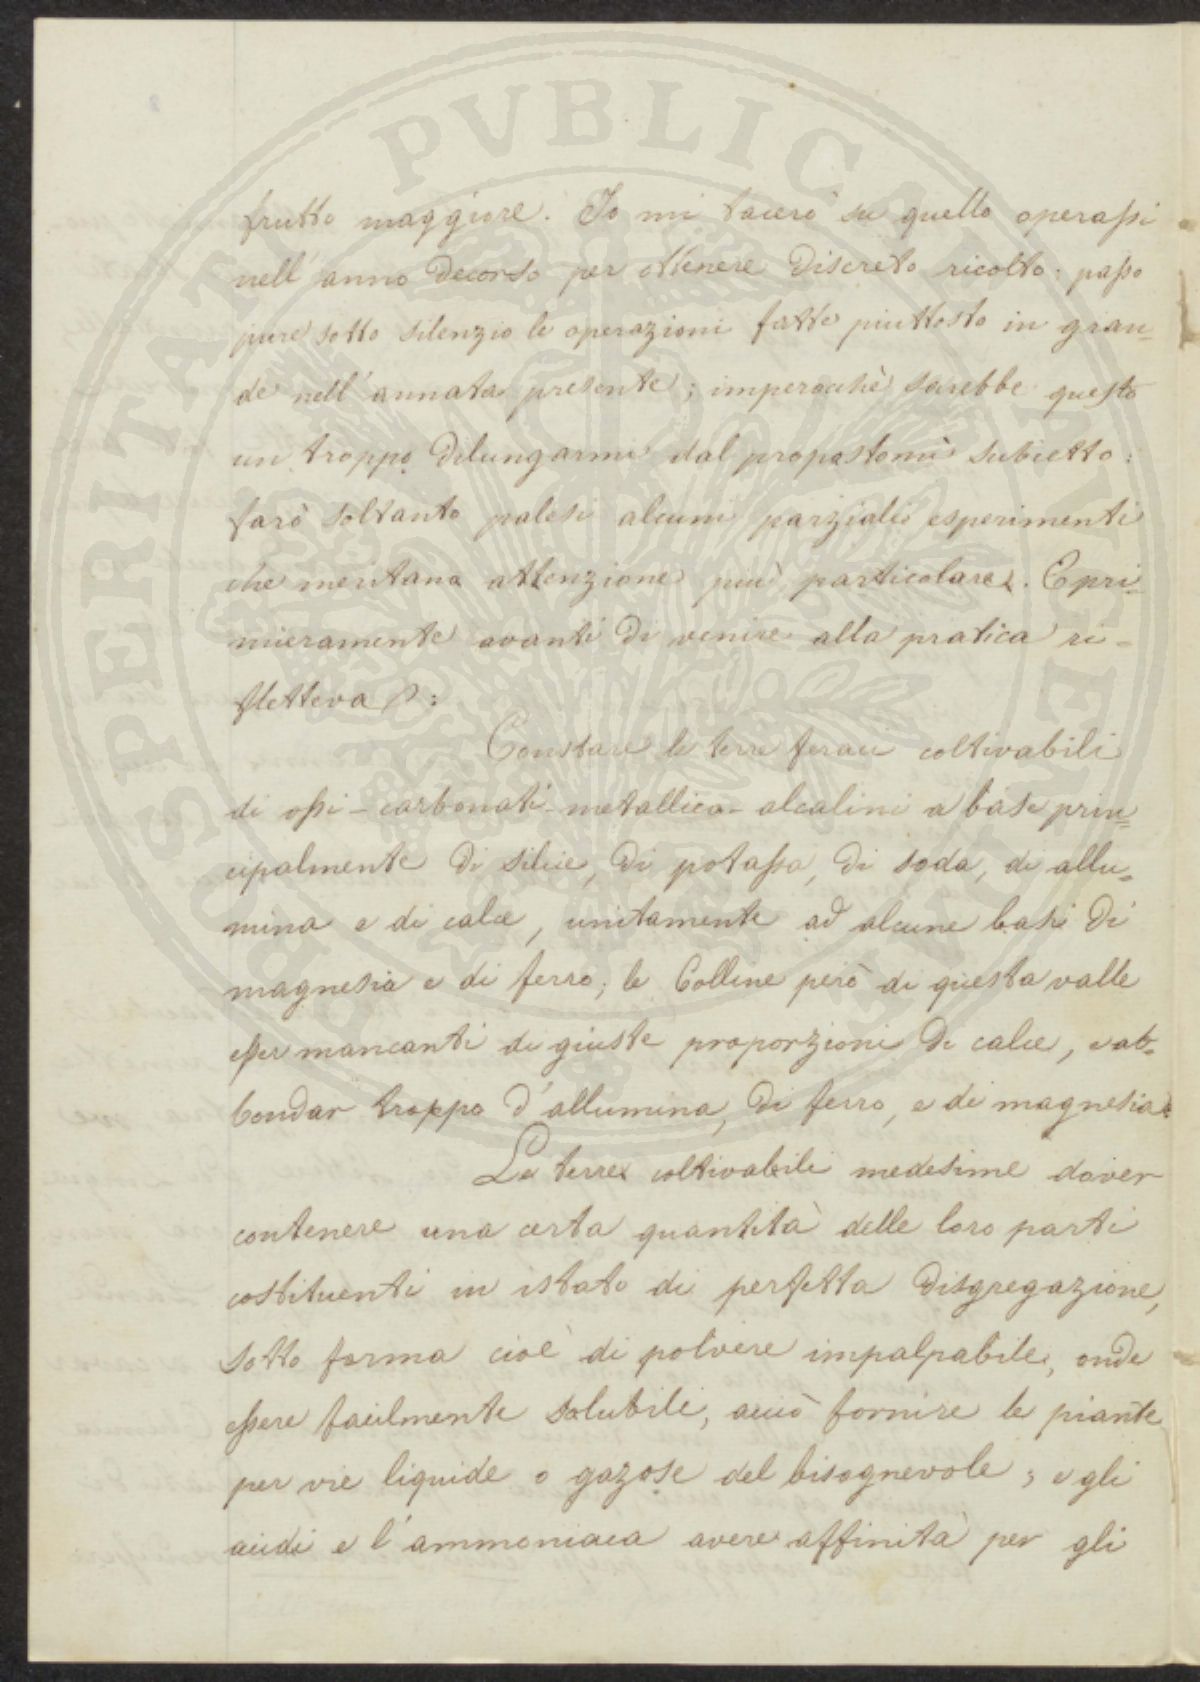 frutto maggiore. Io mi tacerò su quello operassi
nell'anno decorso per ottenere discreto ricolto: passo
pure sotto silenzio le operazioni fatte piuttosto in gran=
de nell'annata presente; imperocchè sarebbe questo
un troppo dilungarmi dal propostomi subietto:
farò soltanto palesi alcuni parziali esperimenti
che meritano attenzione più particolare. E pri-
mieramente avanti di venire alla pratica ri-
fletteva:
Constare le terre feraci coltivabili
di ossi-carbonati-metallico-alcalini a base prin=
cipalmente di silice, di potassa, di soda, di allu=
mina e di calce, unitamente ad alcune basi di
magnesia e di ferro; le Colline però di questa valle
esser mancanti di giuste proporzioni di calce, e ab=
bondar troppo d'allumina, di ferro, e di magnesia
Le terre coltivabili medesime dover
contenere una certa quantità delle loro parti
costituenti in istato di perfetta disgregazione,
sotto forma cioè di polvere impalpabile, onde
essere facilmente solubili, acciò fornire le piante
per vie liquide o gazose del bisognevole; e gli
acidi e l'ammoniaca avere affinità per gli
PROSPERITATI PVBLICAE AVGENDAE